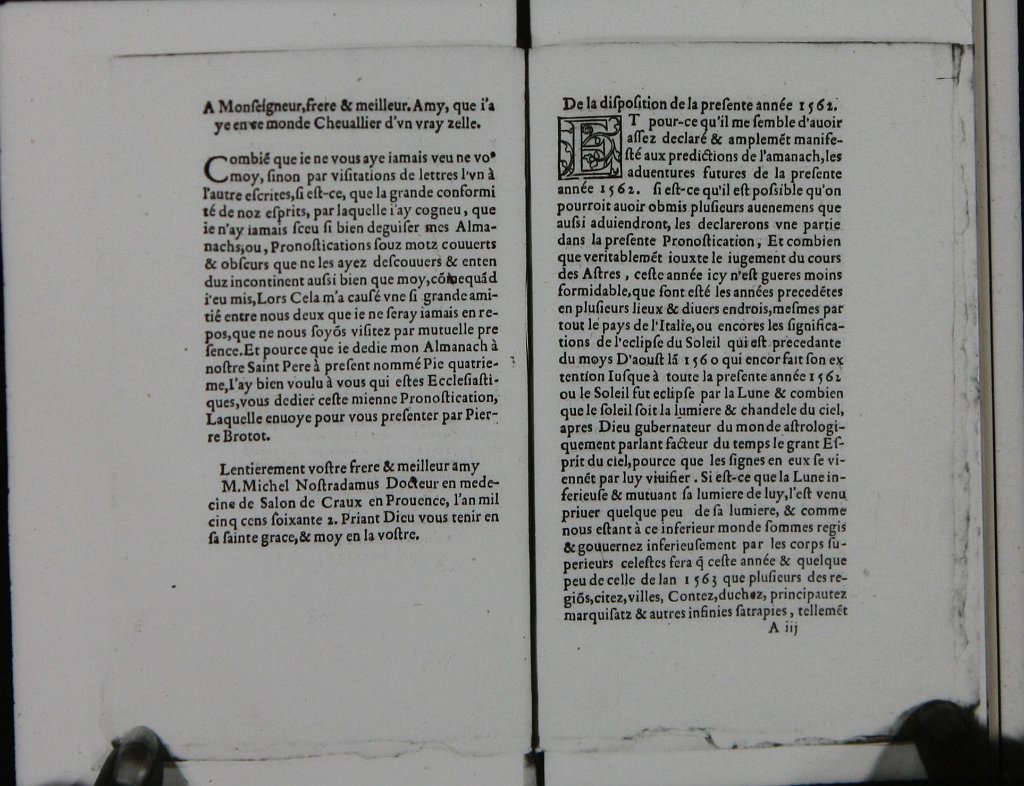 A Monſeigneur,frere & meilleur. Amy, que i'a
ye en ce monde Cheuallier d'vn vray zelle.
Combiē que ie ne vous aye iamais veu ne vo⁹
moy, ſinon par viſitations de lettres l'vn à
l'autre eſcrites,ſi eſt-ce, que la grande conformi
té de noz eſprits, par laquelle i'ay cogneu, que
ie n'ay iamais ſceu ſi bien deguiſer mes Alma-
nachs,ou, Pronoſtications ſouz motz couuerts
& obſcurs que ne les ayez deſcouuers & enten
duz incontinent auſsi bien que moy, quād
i'eu mis,Lors Cela m'a cauſé vne ſi grande ami-
tié entre nous deux que ie ne ſeray iamais en re-
pos,que ne nous ſoyōs viſitez par mutuelle pre
ſence.Et pource que ie dedie mon Almanach à
noſtre Saint Pere à preſent nommé Pie quatrie-
me,I'ay bien voulu à vous qui eſtes Eccleſiaſti-
ques,vous dedier ceſte mienne Pronoſtication,
Laquelle enuoye pour vous preſenter par Pier-
re Brotot.
Lentierement voſtre frere & meilleur amy
M.Michel Noſtradamus Docteur en mede-
cine de Salon de Craux en Prouence, l'an mil
cinq cens ſoixante 2. Priant Dieu vous tenir en
ſa ſainte grace,& moy en la voſtre.
De la diſpoſition de la preſente année 1562.
ET pour-ce qu'il me ſemble d'auoir
aſſez declaré & amplemēt manife-
ſté aux predictions de l'amanach,les
aduentures futures de la preſente
année 1562. ſi eſt-ce qu'il eſt poſsible qu'on
pourroit auoir obmis pluſieurs auenemens que
auſsi aduiendront, les declarerons vne partie
dans la preſente Pronoſtication, Et combien
que veritablemēt iouxte le iugement du cours
des Aſtres , ceſte année icy n'eſt gueres moins
formidable,que ſont eſté les années precedētes
en pluſieurs lieux & diuers endrois,meſmes par
tout le pays de l'Italie,ou encores les ſignifica-
tions de l'eclipſe du Soleil qui eſt precedante
du moys D'aouſt lā 1560 qui encor fait ſon ex
tention Iuſque à toute la preſente année 1562
ou le Soleil fut eclipſe par la Lune & combien
que le ſoleil ſoit la lumiere & chandele du ciel,
apres Dieu gubernateur du monde aſtrologi-
quement parlant facteur du temps le grant Eſ-
prit du ciel,pource que les ſignes en eux ſe vi-
ennēt par luy viuifier . Si eſt-ce que la Lune in-
ferieuſe & mutuant ſa lumiere de luy,l'eſt venu
priuer quelque peu de ſa lumiere, & comme
nous eſtant à ce inferieur monde ſommes regis
& gouuernez inferieuſement par les corps ſu-
perieurs celeſtes ſera q̄ ceſte année & quelque
peu de celle de lan 1563 que pluſieurs des re-
giōs,citez,villes, Contez,duchez, principautez
marquiſatz & autres infinies ſatrapies, tellemēt
A iij